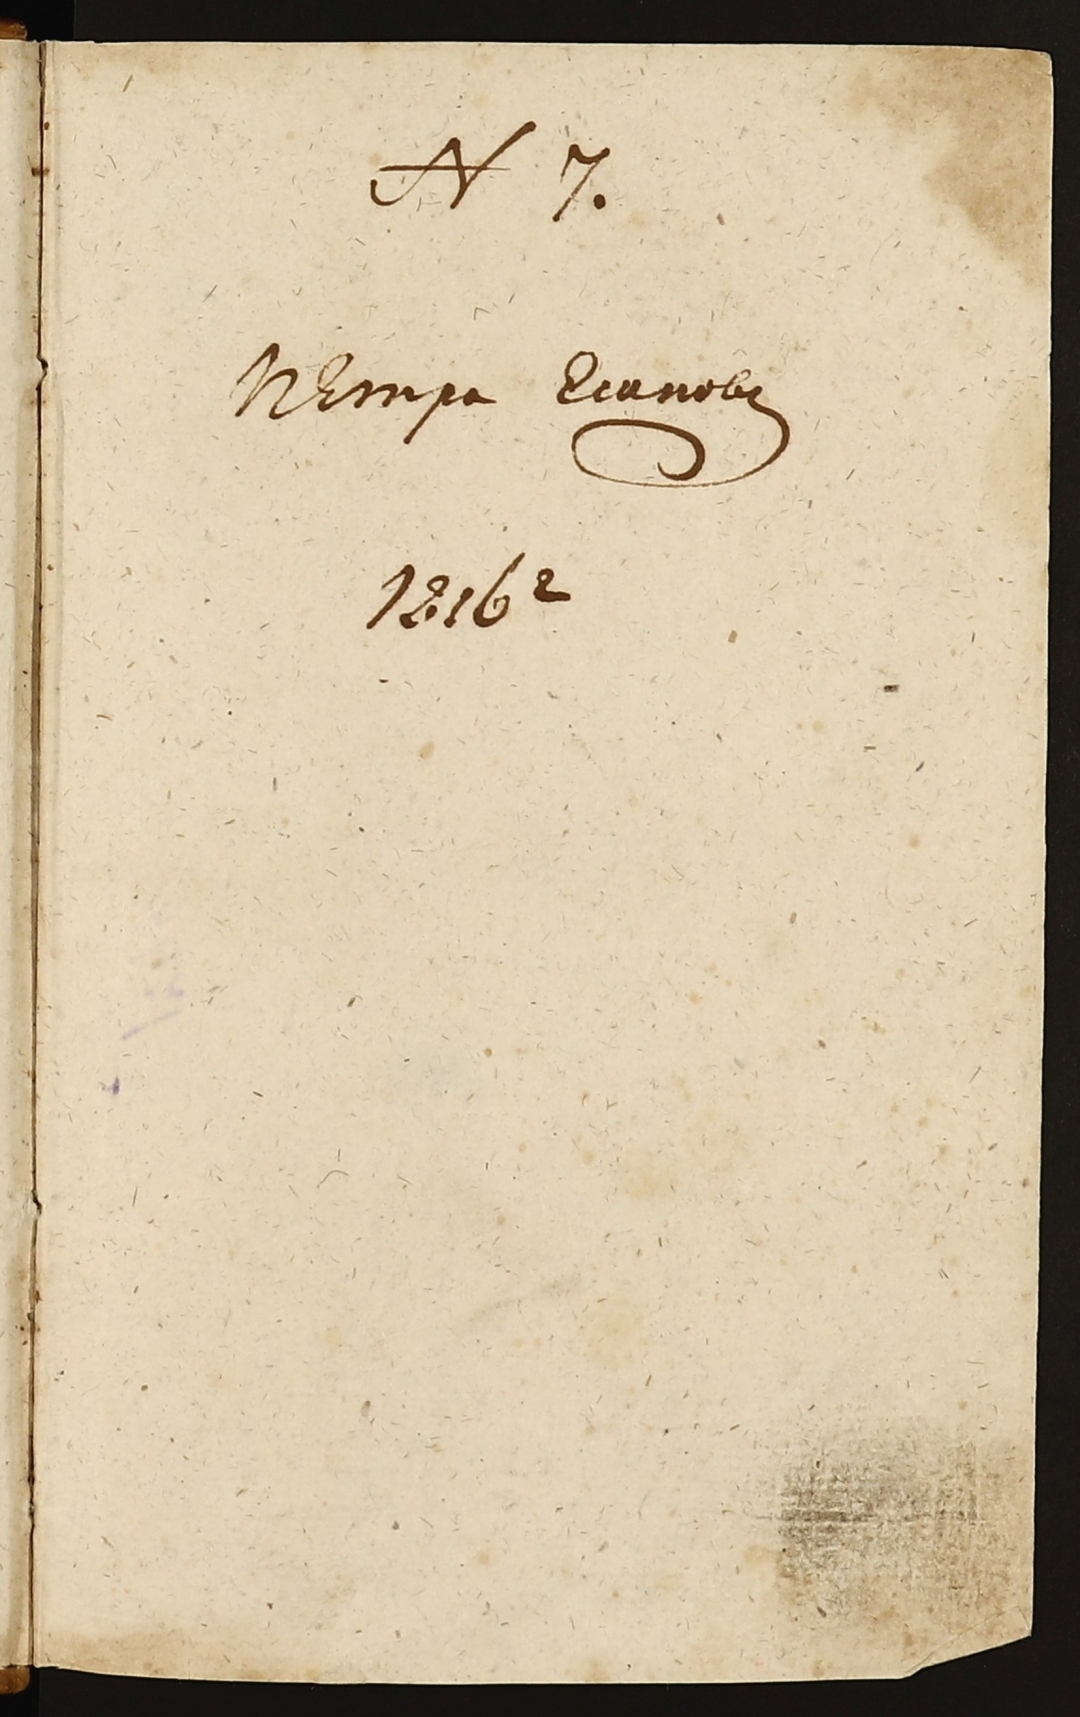 N 7.
Петра Есипова
1816 г